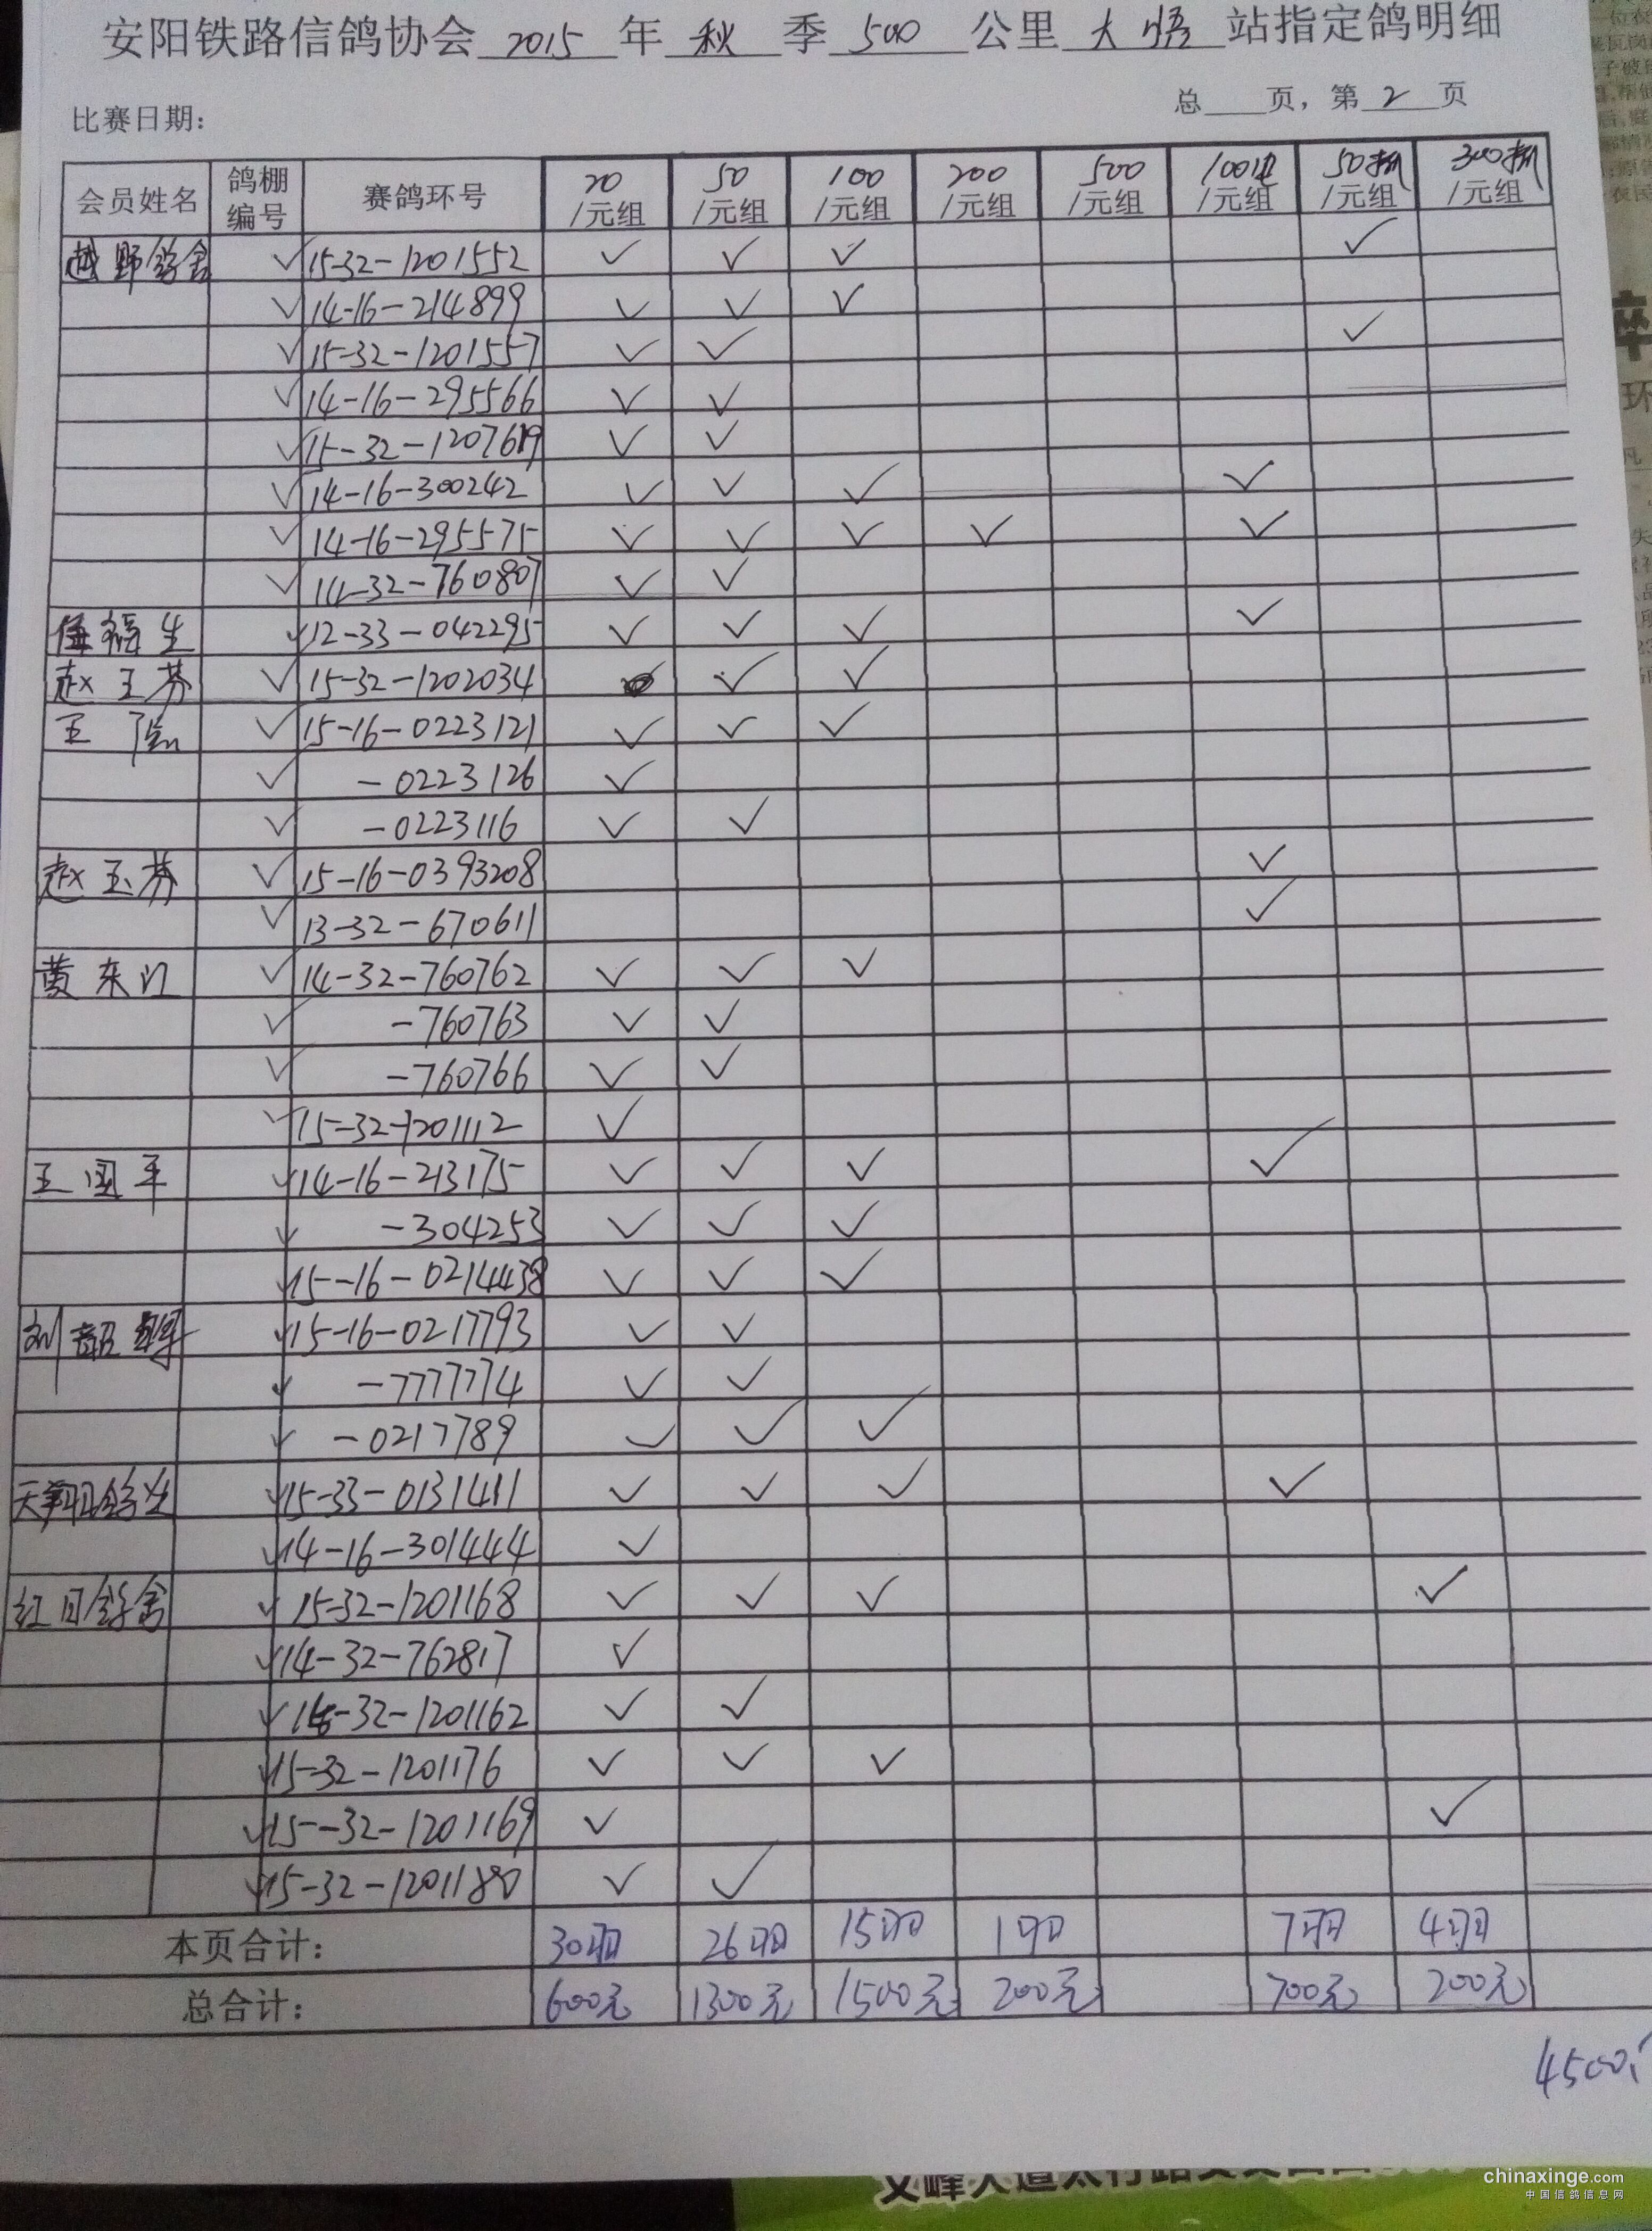 安阳铁路信鸽协会 2015 年 秋 季 500 公里 大悟 站指定鸽明细
比赛日期： 总 页，第 2 页
会员姓名 鸽棚编号 赛鸽环号 20/元组 50/元组 100/元组 200/元组 500/元组 100 /元组 50 /元组 300 /元组
越野鸽舍 ✓ 15-32-1201552 ✓ ✓ ✓ ✓
✓ 14-16-214899 ✓ ✓ ✓
✓ 15-32-1201557 ✓ ✓ ✓
✓ 14-16-295566 ✓ ✓
✓ 15-32-1207619 ✓ ✓
✓ 14-16-300242 ✓ ✓ ✓ ✓
✓ 14-16-295575 ✓ ✓ ✓ ✓ ✓
✓ 14-32-760807 ✓ ✓
福生 ✓ 12-33-042295 ✓ ✓ ✓ ✓
赵玉芬 ✓ 15-32-1202034 ✓ ✓
王 ✓ 15-16-0223121 ✓ ✓ ✓
✓ -0223126 ✓
✓ -0223116 ✓ ✓
赵玉芬 ✓ 15-16-0393208 ✓
✓ 13-32-670611 ✓
黄东 ✓ 14-32-760762 ✓ ✓ ✓
✓ -760763 ✓ ✓
✓ -760766 ✓ ✓
✓ 15-32-1201112 ✓
王国平 ✓ 14-16-213175 ✓ ✓ ✓ ✓
✓ -304253 ✓ ✓ ✓
✓ 15-16-0214438 ✓ ✓ ✓
刘韶 ✓ 15-16-0217793 ✓ ✓
✓ -7777774 ✓ ✓
✓ -0217789 ✓ ✓ ✓
天翔鸽 ✓ 15-33-0131411 ✓ ✓ ✓ ✓
✓ 14-16-301444 ✓
红日鸽舍 ✓ 15-32-1201168 ✓ ✓ ✓ ✓
✓ 14-32-762817 ✓
✓ 15-32-1201162 ✓ ✓
✓ 15-32-1201176 ✓ ✓ ✓
✓ 15-32-1201169 ✓ ✓
✓ 15-32-1201180 ✓ ✓
本页合计： 30羽 26羽 15羽 1羽 7羽 4羽
总合计： 600元 1300元 1500元 200元 700元 200元
4500
chinaxinge.com
中国信鸽信息网